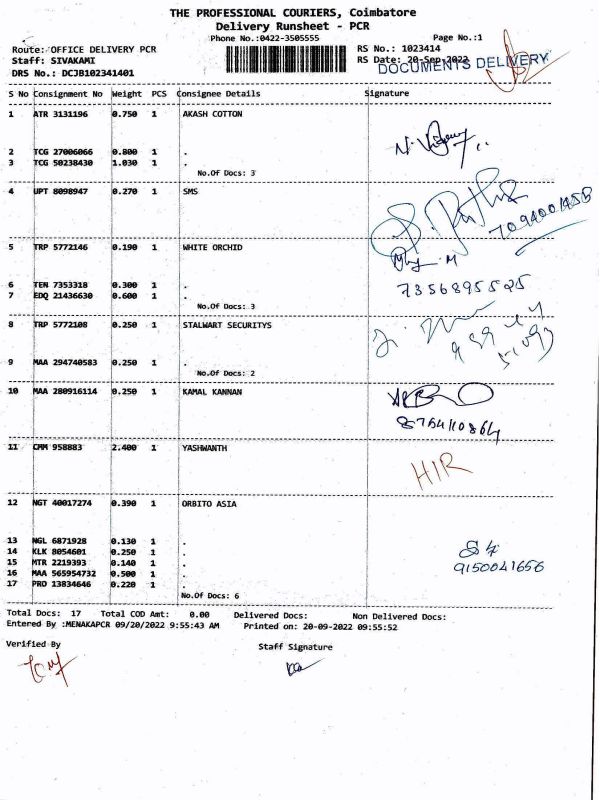 THE PROFESSIONAL COURIERS, Coimbatore
Delivery Runsheet - PCR
Phone No.:0422-3505555 Page No.:1
Route: OFFICE DELIVERY PCR RS No.: 1023414
Staff: SIVAKAMI RS Date: 20-Sep-2022
DOCUMENTS DELIVERY
DRS No.: DCJB102341401
S No Consignment No Weight PCS Consignee Details Signature
1 ATR 3131196 0.750 1 AKASH COTTON
2 TCG 27006066 0.800 1 .
3 TCG 50238430 1.030 1 .
No.Of Docs: 3
4 UPT 8098947 0.270 1 SMS
5 TRP 5772146 0.190 1 WHITE ORCHID
6 TEN 7353318 0.300 1 .
7356895525
7 EDQ 21436630 0.600 1 .
No.Of Docs: 3
8 TRP 5772108 0.250 1 STALWART SECURITYS
9 MAA 294740583 0.250 1 .
No.Of Docs: 2
10 MAA 280916114 0.250 1 KAMAL KANNAN
8764110864
11 CMM 958883 2.400 1 YASHWANTH
HIR
12 NGT 40017274 0.390 1 ORBITO ASIA
13 NGL 6871928 0.130 1 .
14 KLK 8054601 0.250 1 .
15 MTR 2219393 0.140 1 .
9150041656
16 MAA 565954732 0.500 1 .
17 PRO 13834646 0.220 1 .
No.Of Docs: 6
Total Docs: 17 Total COD Amt: 0.00 Delivered Docs: Non Delivered Docs:
Entered By :MENAKAPCR 09/20/2022 9:55:43 AM Printed on: 20-09-2022 09:55:52
Verified By Staff Signature